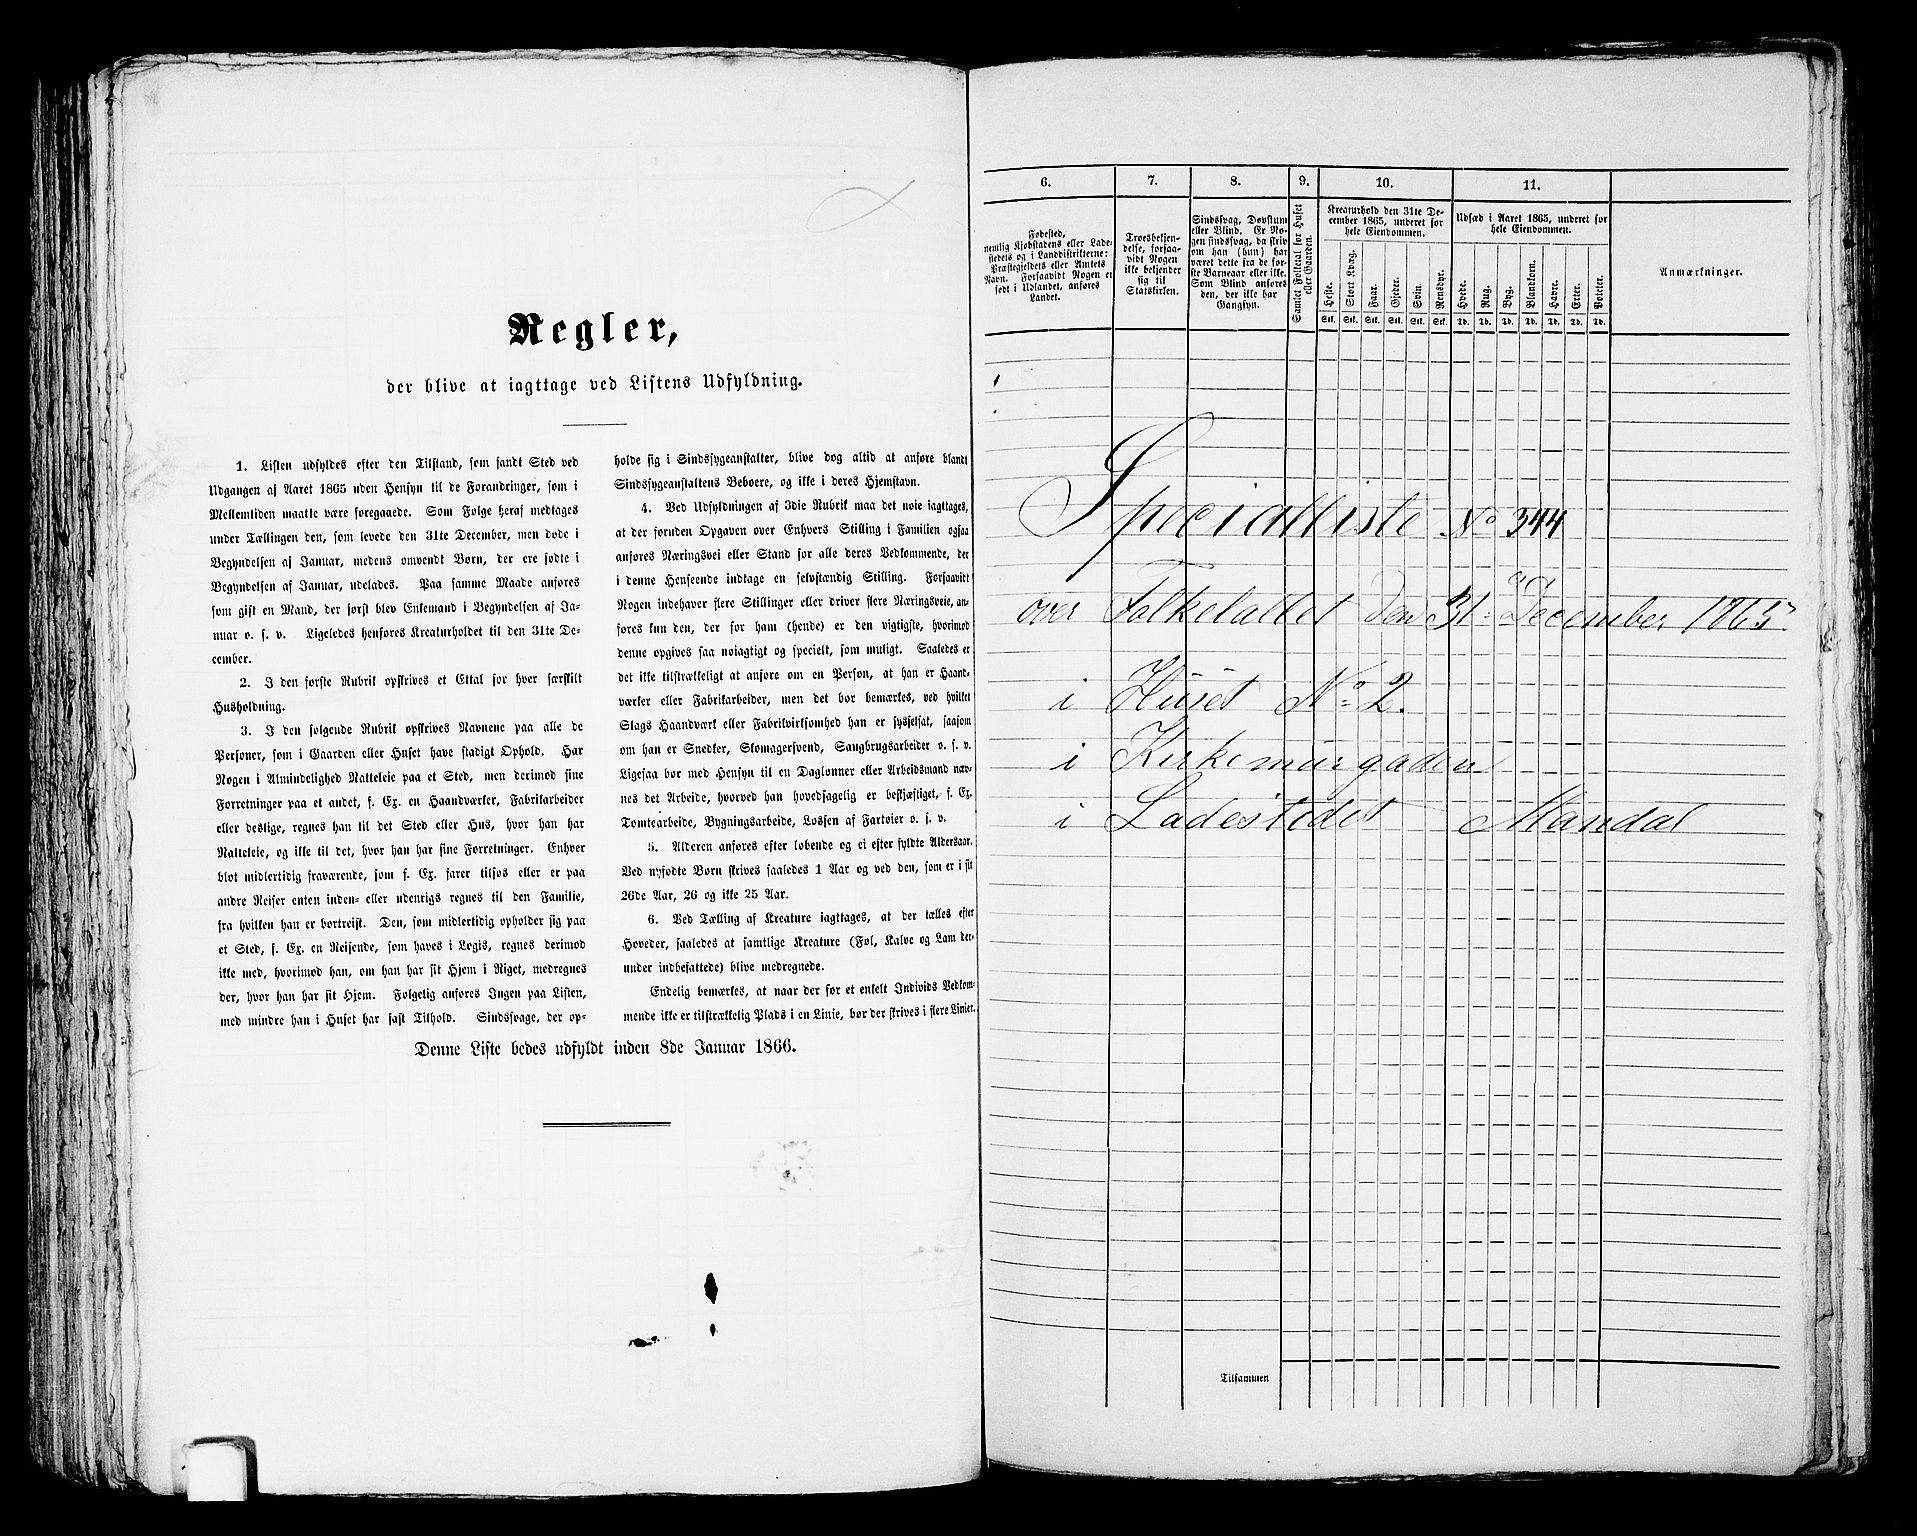 Regler,
der blive at iagttage ved Listens Udfyldning.
1. Listen udfyldes efter den Tilstand, som fandt Sted ved
Udgangen af Aaret 1865 uden Hensyn til de Forandringer, som i
Mellemtiden maatte være foregaaede. Som Følge heraf medtages
under Tællingen den, som levede den 31te December, men døde i
Begyndelsen af Januar, medens omvendt Børn, der ere fødte i
Begyndelsen af Januar, udelades. Paa samme Maade anføres
som gift en Mand, der først blev Enkemand i Begyndelsen af Ja-
nuar o. s. v. Ligeledes henføres Kreaturholdet til den 31te De-
cember.
2. I den første Rubrik opskrives et Ettal for hver særskilt
Husholdning.
3. I den følgende Rubrik opskrives Navnene paa alle de
Personer, som i Gaarden eller Huset have stadigt Ophold. Har
Nogen i Almindelighed Natteleie paa et Sted, men derimod sine
Forretninger paa et andet, f. Ex. en Haandværker, Fabrikarbeider
eller deslige, regnes han til det Sted eller Hus, hvor han har
Natteleie, og ikke til det, hvor han har sine Forretninger. Enhver
blot midlertidig fraværende, som f. Ex. farer tilsøs eller er paa
andre Reiser enten inden- eller udenrigs regnes til den Familie,
fra hvilken han er bortreist. Den, som midlertidig opholder sig paa
et Sted, f. Ex. en Reisende, som haves i Logis, regnes derimod
ikke med, hvorimod han, om han har sit Hjem i Riget, medregnes
der, hvor han har sit Hjem. Følgelig anføres Ingen paa Listen,
med mindre han i Huset har fast Tilhold. Sindssvage, der op-
holde sig i Sindssygeanstalter, blive dog altid at anføre blandt
Sindssygeanstaltens Beboere, og ikke i deres Hjemstavn.
4. Ved Udfyldningen af 3die Rubrik maa det nøie iagttages,
at der foruden Opgaven over Enhvers Stilling i Familien ogsaa
anføres Næringsvei eller Stand for alle deres Vedkommende, der
i denne Henseende indtage en selvstændig Stilling. Forsaavidt
Nogen indehaver flere Stillinger eller driver flere Næringsveie, an-
føres kun den, der for ham (hende) er den vigtigste, hvorimod
denne opgives saa nøiagtigt og specielt, som muligt. Saaledes er
det ikke tilstrækkeligt at anføre om en Person, at han er Haand-
værker eller Fabrikarbeider, men det bør bemærkes, ved hvilket
Slags Haandværk eller Fabrikvirksomhed han er sysselsat, saasom
om han er Snedker, Skomagersvend, Saugbrugsarbeider o. s. v.
Ligesaa bør med Hensyn til en Dagløner eller Arbeidsmand næv-
nes det Arbeide, hvorved han hovedsagelig er beskjæftiget, f. Ex.
Tomtearbeide, Bygningsarbeide, Lossen af Fartøier o. s. v.
5. Alderen anføres efter løbende og ei efter fyldte Aldersaar.
Ved nyfødte Børn skrives saaledes 1 Aar og ved den, som er i sit
26de Aar, 26 og ikke 25 Aar.
6. Ved Tælling af Kreature iagttages, at der tælles efter
Hoveder, saaledes at samtlige Kreature (Føl, Kalve og Lam der-
under indbefattede) blive medregnede.
Endelig bemærkes, at naar der for et enkelt Individs Vedkom-
mende ikke er tilstrækkelig Plads i en Linie, bør der skrives i flere Linier.
Denne Liste bedes udfyldt inden 8de Januar 1866.
6. 7. 8. 9. 10. 11.
Fødested,
nemlig Kjøbstadens eller Lade-
stedets og i Landdistrikterne:
Præstegjeldets eller Amtets
Navn. Forsaavidt Nogen er
født i Udlandet, anføres
Landet.
Troesbekjen-
delse, forsaa-
vidt Nogen
ikke bekjender
sig til
Statskirken.
Sindssvag, Døvstum
eller Blind. Er No-
gen sindssvag, da skriv
om han (hun) har
været dette fra de før-
ste Barneaar eller ikke.
Som Blind anføres
den, der ikke har
Gangsyn.
Gamlet Folketal for Huset
eller Gaarden.
Kreaturhold den 31te De-
cember 1865, underet for
hele Eiendommen.
Heste. Stort Kvæg. Faar. Gjeder. Svin. Rensdyr.
Stk. Stk. Stk. Stk. Stk. Stk.
Udsæd i Aaret 1865, underet for
hele Eiendommen.
Hvede. Rug. Byg. Blandkorn. Havre. Erter. Poteter.
Td. Td. Td. Td. Td. Td. Td.
Anmærkninger.
Specialliste No 344
over Folketallet den 31te December 1865
i Huset No 2.
i Kirkemurgaden
i Ladestedet Mandal
Tilsammen